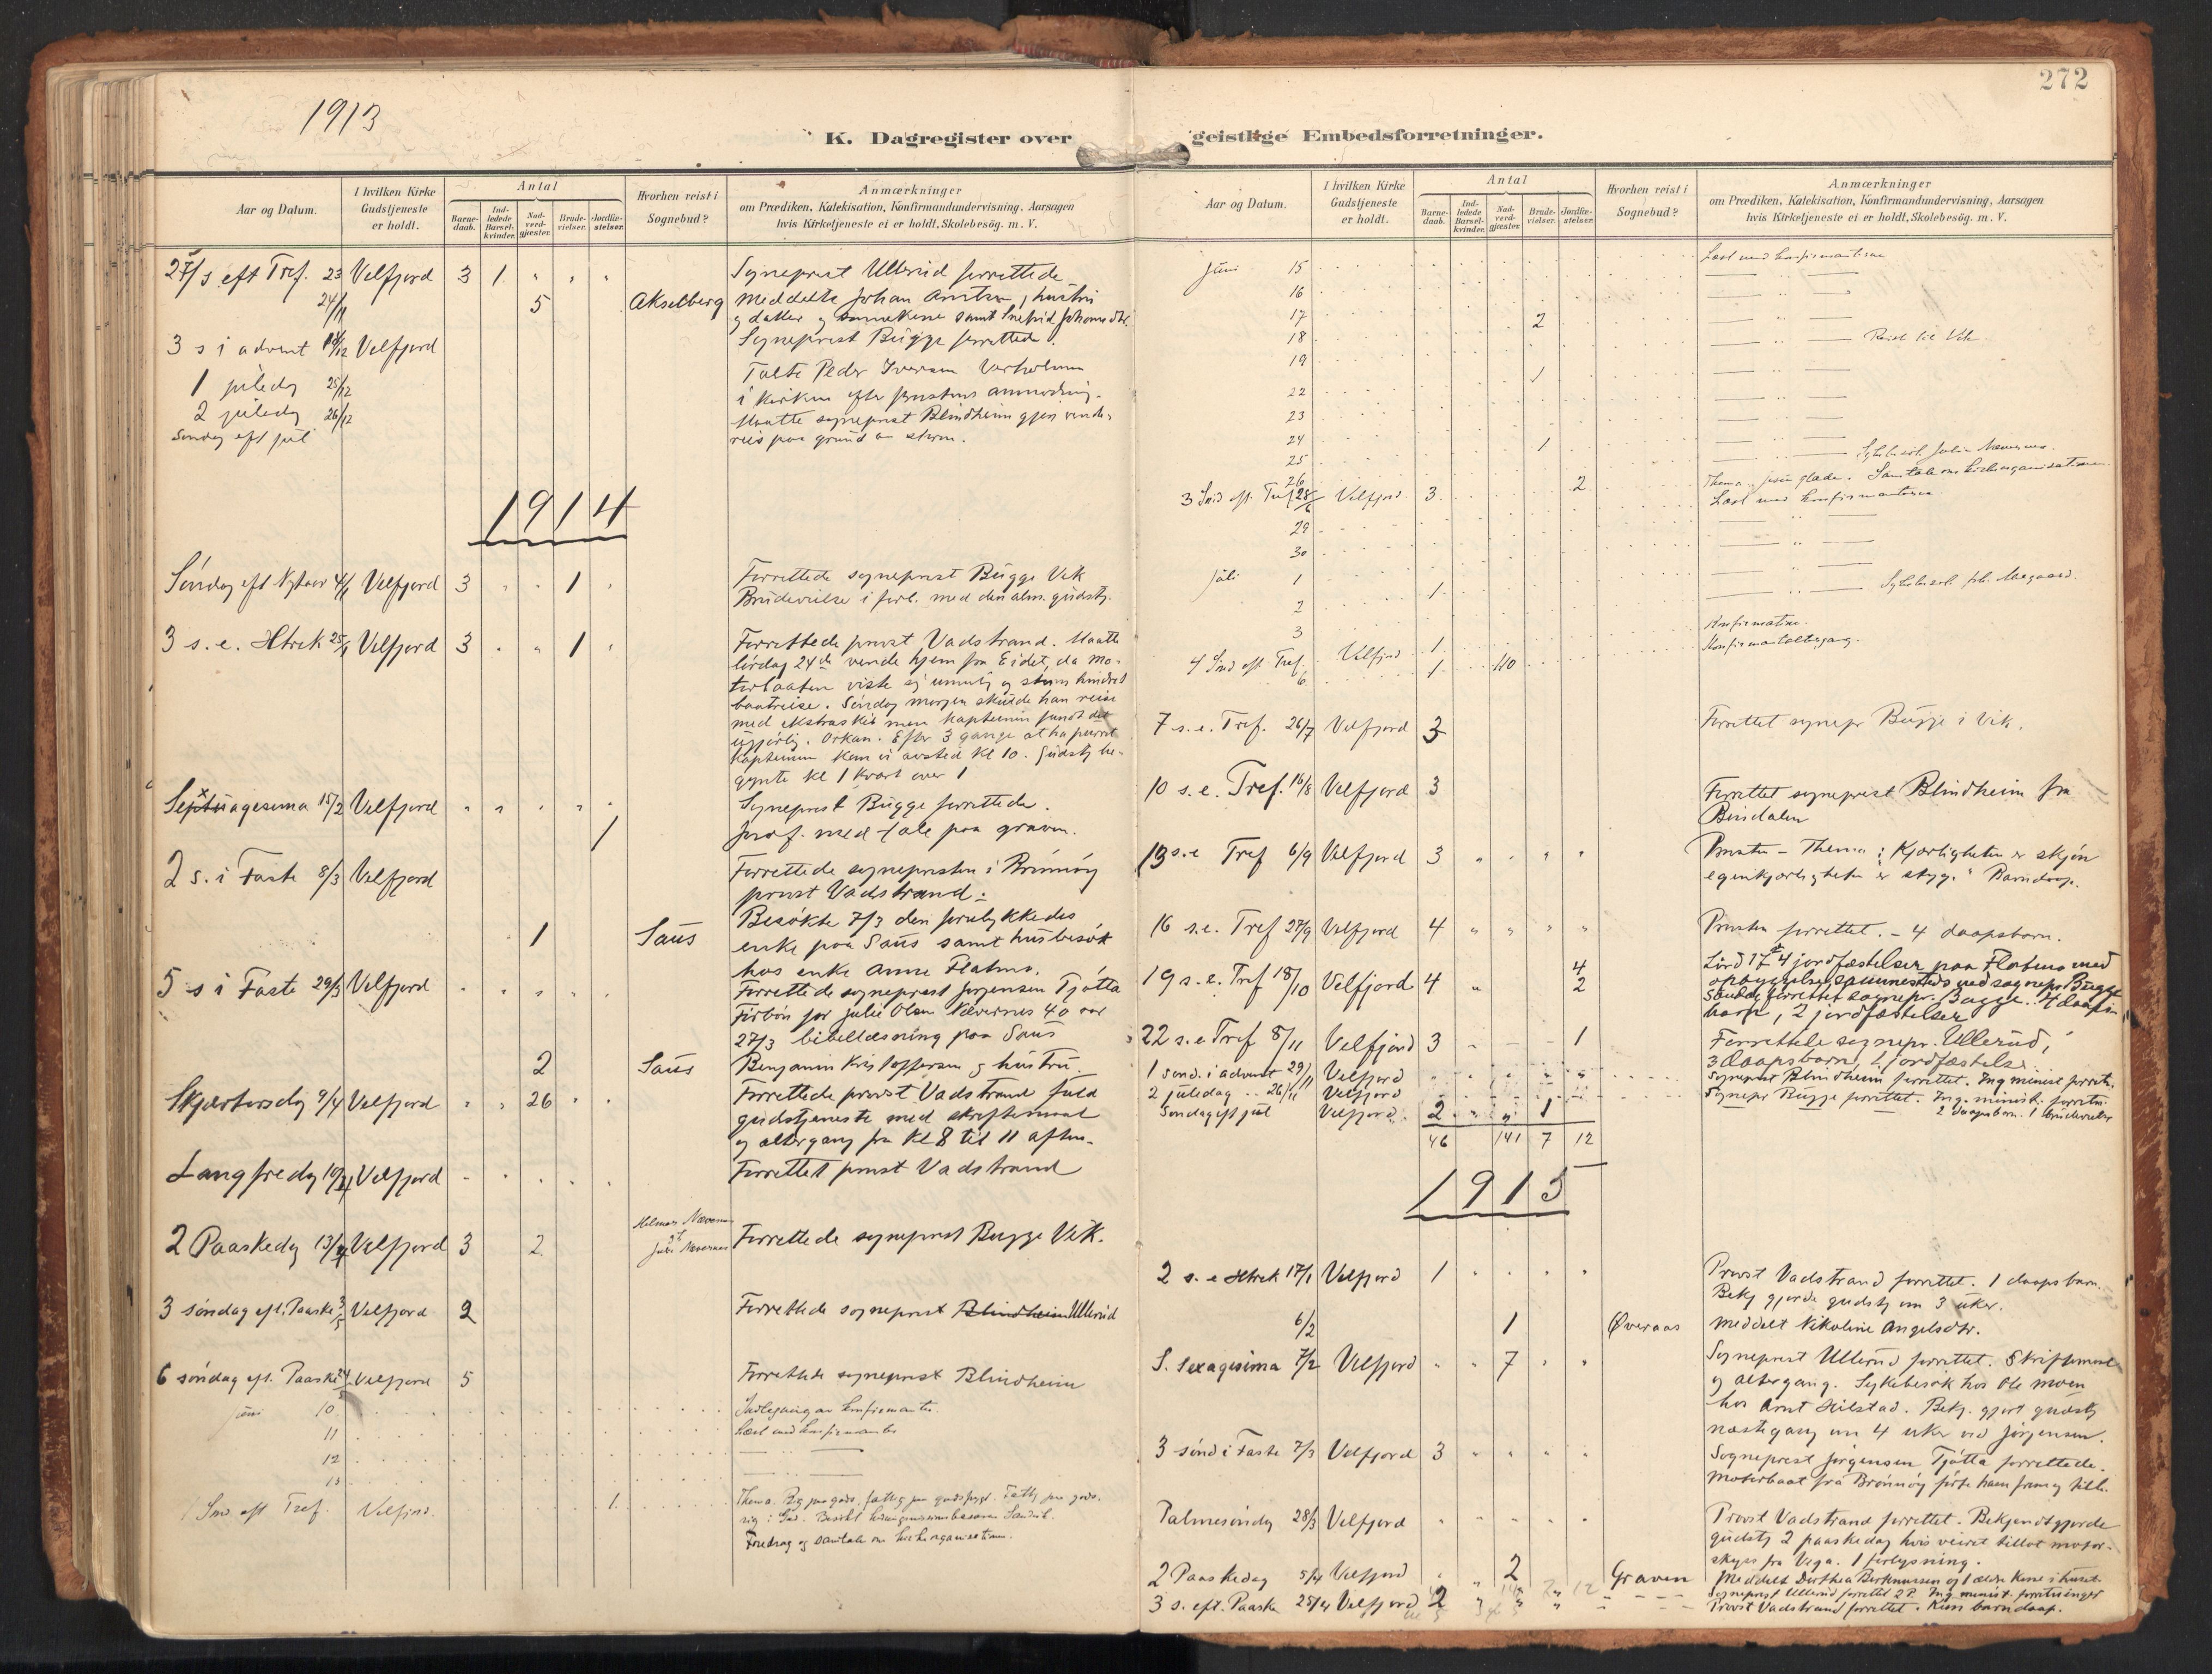 1913
272
K. Dagregister over geistlige Embedsforretninger.
Aar og Datum. I hvilken Kirke Gudstjeneste er holdt. Antal Barne-daab. Ind-ledede Barsel-kvinder. Nad-verd-gjæster. Brude-vielser. Jordfæ-stelser. Hvorhen reist i Sognebud? Anmærkninger om Prædiken, Katekisation, Konfirmandundervisning, Aarsagen hvis Kirketjeneste ei er holdt, Skolebesøg. m. V.
27/s eft Tref. 23 Velfjord 3 1 Sogneprest Ullerud forrettede
24/11 5 Akselberg Meddelte Johan , hustru
og datter og samt
3 s i advent 14/12 Velfjord Sogneprest Bugge forrettede.
1 juledag 25/12 Talte Peder Iversen
i kirken efter anmodning.
2 juledag 26/12 Maatte sogneprest Blindheim gjøre vende-
Søndag eft jul reis paa grund av storm.
1914
Søndag eft Nytaar 4/1 Velfjord 3 1 Forrettede sogneprest Bugge Vik
Brudevielse i forb. med den alm. gudstj.
3 s. e. Htrek 25/1 Velfjord 3 1 Forrettede prost Vadstrand. Maatte
lørdag 24de vende hjem fra Eidet, da mo-
torbaaten viste sig umulig og storm hindret
baatreise. Søndag morgen skulde han reise
med ekstraskib men kapteinen fandt det
ugjørlig. Orkan. Efter 3 gange at ha purret
kapteinen kom vi avsted kl 10. Gudstj be-
gynte kl 1 kvart over 1
Septuagesima 15/2 Velfjord Sogneprest Bugge forrettede.
1 Jordf. med tale paa graven.
2 s. i Faste 8/3 Velfjord Forrettede sognepresten i Brønnøy
prost Vadstrand.
1 Saus Besøkte 7/3 den forulykkedes
enke paa Saus samt husbesøk
hos enke Anne Flatmo.
5 s i Faste 29/3 Velfjord Forrettede sogneprest Jørgensen Tjøtta
Forbøn for Julie Olsen Nævernes 40 aar
27/3 bibellæsning paa Saus
2 Saus Benjamin Kristoffersen og hustru.
Skjærtorsdag 9/4 Velfjord 26 Forrettede prost Vadstrand fuld
gudstjeneste med skriftemaal
og altergang fra kl 8 til 11 aften.
Langfredag 10/4 Velfjord Forrettet prost Vadstrand
2 Paaskedag 13/4 Velfjord 3 2 Nævernes Forrettede sogneprest Bugge Vik.
3 søndag eft. Paaske 3/5 Velfjord 2 Forrettede sogneprest Blindheim Ullerud
6 søndag eft. Paaske 24/5 Velfjord 5 Forrettede sogneprest Blindheim
juni 10 Indlegging av konfirmanter.
11 Læst med konfirmanter
12
13
1 Snd eft Tref. Velfjord. 1. Thema. Rig paa gods, fattig paa gudsfrygt. Fattig paa gods.
rig i Gud. Besøkt
Foredrag og samtale om kirkeorganisationen.
Juni 15 Læst med konfirmanterne
16
17 2
18 Reist til Vik.
19
22 1
23
24
25 1 Sykebesøk Julie Nævernes.
26
3 Snd eft. Tref 28/6 Velfjord 3. 2 Thema. Jesu glæde. Samtale om kirkeorganisationen.
Læst med konfirmanterne.
29
30
Juli 1
2 1. Sykebesøk
3 Konfirmation.
4 Snd eft. Tref. Velfjord 1. Konfirmantaltergang.
6 1. 110
7 s. e. Tref. 26/7 Velfjord 3 Forrettet sognepr Bugge i Vik.
10 s. e. Tref. 16/8 Velfjord 3 Forrettet sogneprest Blindheim fra
Bindalen
13 s. e Tref 6/9 Velfjord 3 Prosten - Thema: Kjærligheten er skjøn
egenkjærligheten er styg." Barnedaap.
16 s. e. Tref 27/9 Velfjord 4 Prosten forrettet. - 4 daapsbarn.
19 s. e. Tref 18/10 Velfjord 4 4 2 Lørd 17de 4 jordfæstelser paa Flatmo med
opbyggelse sammesteds ved sognepr Bugge
Søndag forrettet sognepr. Bugge. 4 daaps-
barn, 2 jordfæstelser
22 s. e Tref 8/11 Velfjord 3 1 Forrettede sognepr. Ullerud,
3 daapsbarn, 1 jordfæstelse.
1 sønd. i advent 29/11 Velfjord Sogneprest Blindheim forrettet. Ing minist forretn.
2 juledag 26/11 Velfjord Sognepr Bugge forrettet. Ing. minist. forretn.
Søndag eft jul Velfjord. 2 1 2 daapsbarn. 1 brudevielse
46 141 7 12
1915
2 s. e Htrek 17/1 Velfjord 1 Prost Vadstrand forrettet. 1 daapsbarn.
Bekj gjorde gudstj om 3 uker.
6/2 1 Øveraas Meddelt Nikoline Angelsdtr.
S. Sexagesima 7/2 Velfjord 7 Sogneprest Ullerud forrettet. Skriftemaal
og altergang. Sykebesøk hos Ole Moen
hos Arnt Hilstad. Bekj. gjort gudstj
næste gang om 4 uker ved Jørgensen.
3 sønd i Faste 7/3 Velfjord 3 Sogneprest Jørgensen Tjøtta forrettede.
Motorbaat fra Brønnøy førte ham frem og tilb.
Palmesøndag 28/3 Velfjord Prost Vadstrand forrettet. Bekjendtgjorde
gudstj 2 paaskedag hvis veiret tillot motor-
skyss fra Vega. 1 forlysning.
2 Paaskedag 5/4 Velfjord 2 Graven Meddelt Dorthea Berntsen og ældre kone i huset.
Sogneprest Ullerud forrettet 2 P. Ing minist. forretninger
3 s. eft. Paaske 25/4 Velfjord 2 Prost Vadstrand forrettet. Kun barnedaap.